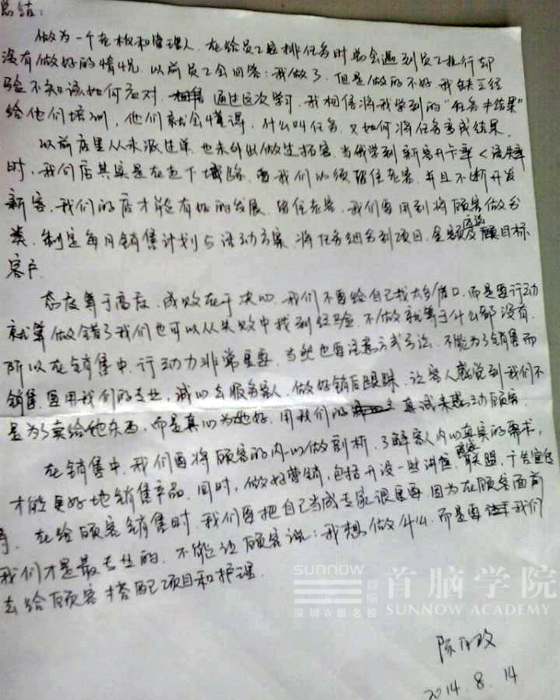 总结:
做为一个老板和管理人, 在给员工安排任务时总会遇到员工推行却
没有做好的情况, 以前员工会回答:我做了, 但是做的不好, 我缺乏经
验不知该如何应对. 通过这次学习, 我相信将我学到的"任务≠结果"
给他们培训, 他们就会懂得, 什么叫任务, 又如何将任务变成结果.
以前店里从未派过单, 也未外出做过拓客, 当我学到新客开卡率<流失率
时, 我们店其实是在走下坡路, 而我们必须留住老客, 并且不断开发
新客, 我们的店才能有好的发展. 留住老客, 我们要用到将顾客做分
类, 制定每月销售计划与活动方案, 将任务细分到项目, 金额及 目标
客户.
态度等于高度, 成败在于决心, 我们不要给自己找太多借口, 而是要行动
就算做错了我们也可以从失败中找到经验, 不做就等于什么都没有.
所以在销售中, 行动力非常重要, 当然也要注意方式方法, 不能为了销售而
销售, 要用我们的专业, 诚心去服务客人, 做好销后跟踪, 让客人感觉到我们不
是为了卖给他东西, 而是真心为她好, 用我们的 真诚来感动顾客.
在销售中, 我们要将顾客的内心做剖析, 了解客人内心真实的需求,
才能更好地销售产品. 同时, 做好营销, 包括开设一些讲座, 联盟, 广告宣传
等. 在给顾客销售时, 我们要把自己当成专家很重要, 因为在顾客面前
我们才是最专业的, 不能让顾客说:我想做什么, 而是要 我们
去给顾客搭配项目和护理.
SUNNOW 首脑
深圳 名校
首脑学院
SUNNOW ACADEMY
2014. 8. 14